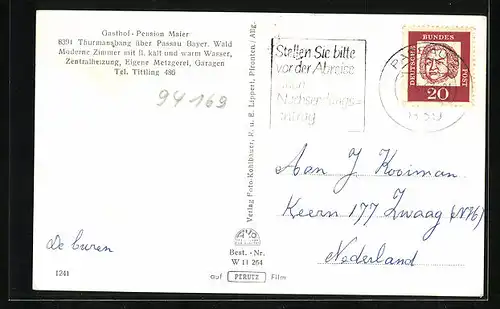 Gasthof - Pension Maier
8391 Thurmansbang über Passau Bayer. Wald
Moderne Zimmer mit fl. kalt und warm Wasser,
Zentralheizung, Eigene Metzgerei, Garagen
Tel. Tittling 486
94169
De buren
1241
Verlag Foto-Kohlbauer, R. u. E. Lippert, Pfronten/Allg.
Best.-Nr.
W 11 264
auf PERUTZ Film
Stellen Sie bitte
vor der Abreise
einen
Nachsendungs=
antrag
DEUTSCHE BUNDESPOST
20
Aan J Kooiman
Keern 177 Zwaag (N46)
Nederland